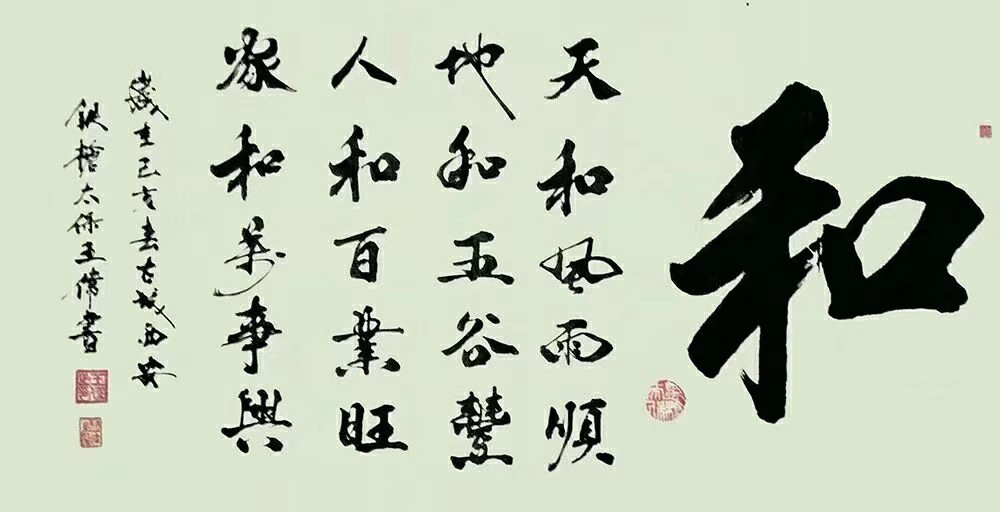 和
天和风雨順
地和五谷豐
人和百業旺
家和萬事興
歲在己亥春古城西安
鉄榰太保王偉書